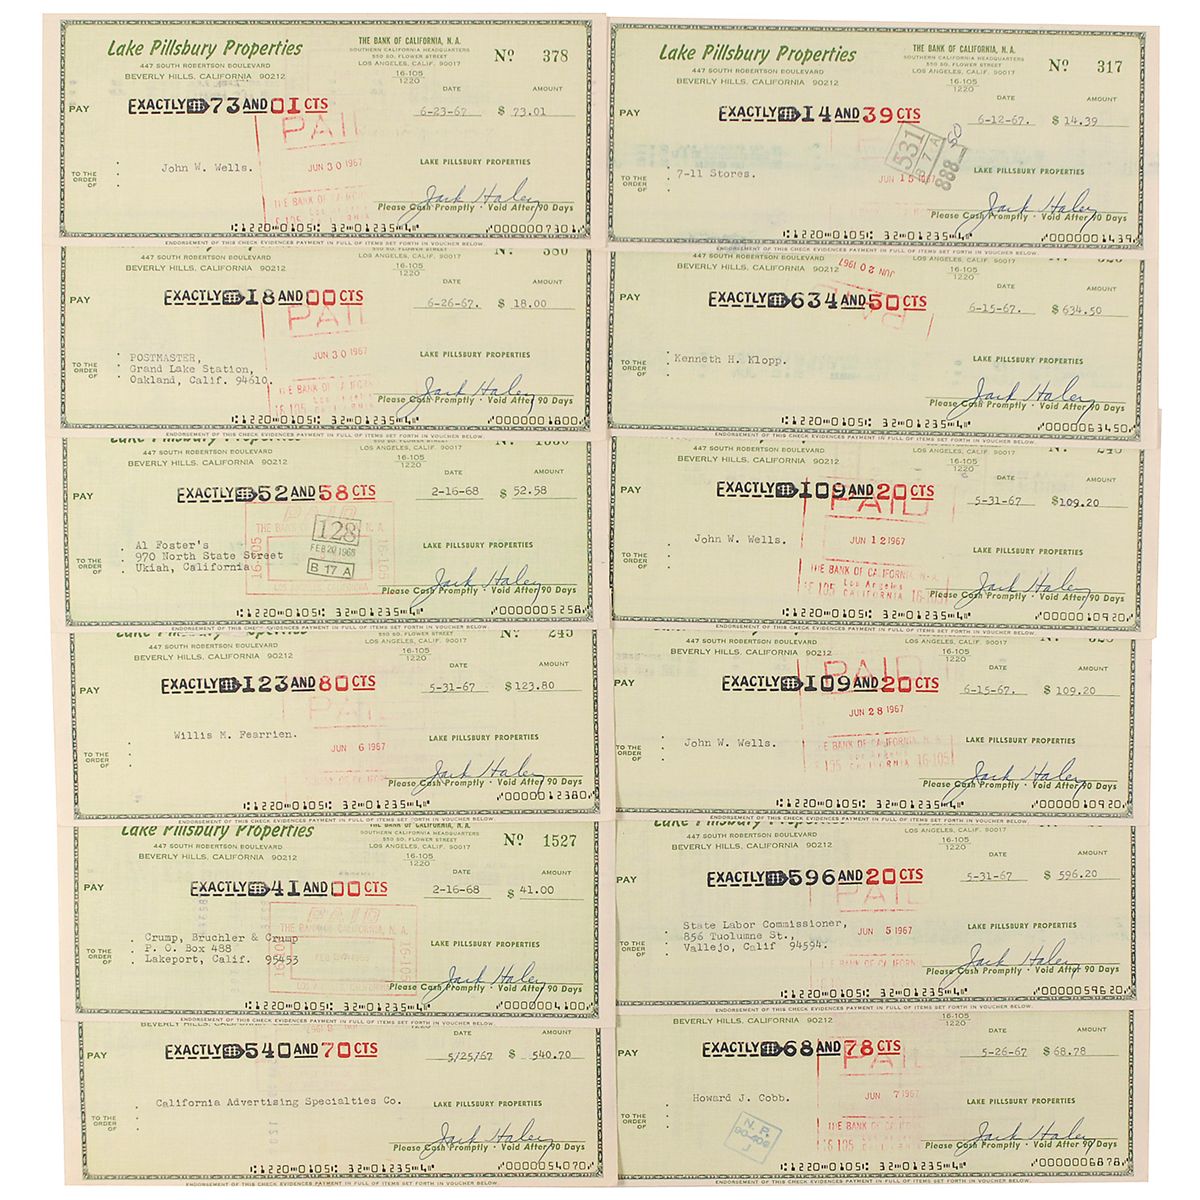 Lake Pillsbury Properties
447 SOUTH ROBERTSON BOULEVARD
BEVERLY HILLS, CALIFORNIA 90212
THE BANK OF CALIFORNIA, N. A.
SOUTHERN CALIFORNIA HEADQUARTERS
550 SO. FLOWER STREET
LOS ANGELES, CALIF. 90017
16-105
1220
Nº 378
DATE AMOUNT
PAY EXACTLY 73 AND 01 CTS 6-23-67 $ 73.01
PAID
JUN 30 1967
TO THE ORDER OF John W. Wells. LAKE PILLSBURY PROPERTIES
Jack Haley
Please Cash Promptly · Void After 90 Days
⑆1220⑉0105⑆ 32⑉01235⑉4⑈ ⑈0000007301⑈
ENDORSEMENT OF THIS CHECK EVIDENCES PAYMENT IN FULL OF ITEMS SET FORTH IN VOUCHER BELOW.
447 SOUTH ROBERTSON BOULEVARD
BEVERLY HILLS, CALIFORNIA 90212
LOS ANGELES, CALIF. 90017
16-105
1220
Nº 380
DATE AMOUNT
PAY EXACTLY 18 AND 00 CTS 6-26-67. $ 18.00
PAID
JUN 30 1967
TO THE ORDER OF POSTMASTER,
Grand Lake Station,
Oakland, Calif. 94610.
LAKE PILLSBURY PROPERTIES
Jack Haley
Please Cash Promptly · Void After 90 Days
⑆1220⑉0105⑆ 32⑉01235⑉4⑈ ⑈0000001800⑈
ENDORSEMENT OF THIS CHECK EVIDENCES PAYMENT IN FULL OF ITEMS SET FORTH IN VOUCHER BELOW.
Lake Pillsbury Properties
447 SOUTH ROBERTSON BOULEVARD
BEVERLY HILLS, CALIFORNIA 90212
LOS ANGELES, CALIF. 90017
16-105
1220
DATE AMOUNT
PAY EXACTLY 52 AND 58 CTS 2-16-68 $ 52.58
PAID
128
FEB 20 1968
B 17 A
TO THE ORDER OF Al Foster's
970 North State Street
Ukiah, California
LAKE PILLSBURY PROPERTIES
Jack Haley
Please Cash Promptly · Void After 90 Days
⑆1220⑉0105⑆ 32⑉01235⑉4⑈ ⑈0000005258⑈
ENDORSEMENT OF THIS CHECK EVIDENCES PAYMENT IN FULL OF ITEMS SET FORTH IN VOUCHER BELOW.
Lake Pillsbury Properties
447 SOUTH ROBERTSON BOULEVARD
BEVERLY HILLS, CALIFORNIA 90212
550 SO. FLOWER STREET
LOS ANGELES, CALIF. 90017
16-105
1220
Nº 245
DATE AMOUNT
PAY EXACTLY 123 AND 80 CTS 5-31-67 $ 123.80
PAID
JUN 6 1967
TO THE ORDER OF Willis M. Fearrien. LAKE PILLSBURY PROPERTIES
Jack Haley
Please Cash Promptly · Void After 90 Days
⑆1220⑉0105⑆ 32⑉01235⑉4⑈ ⑈0000012380⑈
ENDORSEMENT OF THIS CHECK EVIDENCES PAYMENT IN FULL OF ITEMS SET FORTH IN VOUCHER BELOW.
Lake Pillsbury Properties
447 SOUTH ROBERTSON BOULEVARD
BEVERLY HILLS, CALIFORNIA 90212
THE BANK OF CALIFORNIA, N. A.
SOUTHERN CALIFORNIA HEADQUARTERS
550 SO. FLOWER STREET
LOS ANGELES, CALIF. 90017
16-105
1220
Nº 1527
DATE AMOUNT
PAY EXACTLY 41 AND 00 CTS 2-16-68 $ 41.00
PAID
THE BANK OF CALIFORNIA, N. A.
TO THE ORDER OF Crump, Bruchler & Crump
P. O. Box 488
Lakeport, Calif. 95453
LAKE PILLSBURY PROPERTIES
Jack Haley
Please Cash Promptly · Void After 90 Days
⑆1220⑉0105⑆ 32⑉01235⑉4⑈ ⑈0000004100⑈
ENDORSEMENT OF THIS CHECK EVIDENCES PAYMENT IN FULL OF ITEMS SET FORTH IN VOUCHER BELOW.
BEVERLY HILLS, CALIFORNIA 90212
DATE AMOUNT
PAY EXACTLY 540 AND 70 CTS 5/25/67 $ 540.70
TO THE ORDER OF California Advertising Specialties Co. LAKE PILLSBURY PROPERTIES
Jack Haley
Please Cash Promptly · Void After 90 Days
⑆1220⑉0105⑆ 32⑉01235⑉4⑈ ⑈0000054070⑈
ENDORSEMENT OF THIS CHECK EVIDENCES PAYMENT IN FULL OF ITEMS SET FORTH IN VOUCHER BELOW.
Lake Pillsbury Properties
447 SOUTH ROBERTSON BOULEVARD
BEVERLY HILLS, CALIFORNIA 90212
THE BANK OF CALIFORNIA, N. A.
SOUTHERN CALIFORNIA HEADQUARTERS
550 SO. FLOWER STREET
LOS ANGELES, CALIF. 90017
16-105
1220
Nº 317
DATE AMOUNT
PAY EXACTLY 14 AND 39 CTS 6-12-67. $ 14.39
531
B 7 A
888
50
JUN 15 1967
TO THE ORDER OF 7-11 Stores. LAKE PILLSBURY PROPERTIES
Jack Haley
Please Cash Promptly · Void After 90 Days
⑆1220⑉0105⑆ 32⑉01235⑉4⑈ ⑈0000001439⑈
ENDORSEMENT OF THIS CHECK EVIDENCES PAYMENT IN FULL OF ITEMS SET FORTH IN VOUCHER BELOW.
447 SOUTH ROBERTSON BOULEVARD
BEVERLY HILLS, CALIFORNIA 90212
LOS ANGELES, CALIF. 90017
16-105
1220
JUN 20 1967
PAID
DATE AMOUNT
PAY EXACTLY 634 AND 50 CTS 6-15-67. $ 634.50
TO THE ORDER OF Kenneth H. Klopp. LAKE PILLSBURY PROPERTIES
Jack Haley
Please Cash Promptly · Void After 90 Days
⑆1220⑉0105⑆ 32⑉01235⑉4⑈ ⑈0000063450⑈
ENDORSEMENT OF THIS CHECK EVIDENCES PAYMENT IN FULL OF ITEMS SET FORTH IN VOUCHER BELOW.
447 SOUTH ROBERTSON BOULEVARD
BEVERLY HILLS, CALIFORNIA 90212
LOS ANGELES, CALIF. 90017
16-105
1220
DATE AMOUNT
PAY EXACTLY 109 AND 20 CTS 5-31-67 $ 109.20
PAID
JUN 12 1967
THE BANK OF CALIFORNIA, N. A.
Los Angeles
16-105 CALIFORNIA 16-105
TO THE ORDER OF John W. Wells. LAKE PILLSBURY PROPERTIES
Jack Haley
Please Cash Promptly · Void After 90 Days
⑆1220⑉0105⑆ 32⑉01235⑉4⑈ ⑈0000010920⑈
ENDORSEMENT OF THIS CHECK EVIDENCES PAYMENT IN FULL OF ITEMS SET FORTH IN VOUCHER BELOW.
Lake Pillsbury Properties
447 SOUTH ROBERTSON BOULEVARD
BEVERLY HILLS, CALIFORNIA 90212
LOS ANGELES, CALIF. 90017
16-105
1220
DATE AMOUNT
PAY EXACTLY 109 AND 20 CTS 6-15-67. $ 109.20
PAID
JUN 28 1967
TO THE ORDER OF John W. Wells. LAKE PILLSBURY PROPERTIES
Jack Haley
Please Cash Promptly · Void After 90 Days
⑆1220⑉0105⑆ 32⑉01235⑉4⑈ ⑈0000010920⑈
ENDORSEMENT OF THIS CHECK EVIDENCES PAYMENT IN FULL OF ITEMS SET FORTH IN VOUCHER BELOW.
Lake Pillsbury Properties
447 SOUTH ROBERTSON BOULEVARD
BEVERLY HILLS, CALIFORNIA 90212
LOS ANGELES, CALIF. 90017
16-105
1220
DATE AMOUNT
PAY EXACTLY 596 AND 20 CTS 5-31-67 $ 596.20
PAID
JUN 5 1967
TO THE ORDER OF State Labor Commissioner,
856 Tuolumne St.,
Vallejo, Calif 94594.
LAKE PILLSBURY PROPERTIES
Jack Haley
Please Cash Promptly · Void After 90 Days
⑆1220⑉0105⑆ 32⑉01235⑉4⑈ ⑈0000059620⑈
ENDORSEMENT OF THIS CHECK EVIDENCES PAYMENT IN FULL OF ITEMS SET FORTH IN VOUCHER BELOW.
BEVERLY HILLS, CALIFORNIA 90212
16-105
1220
DATE AMOUNT
PAY EXACTLY 68 AND 78 CTS 5-26-67 $ 68.78
PAID
JUN 7 1967
TO THE ORDER OF Howard J. Cobb. LAKE PILLSBURY PROPERTIES
N. P.
90-409
J
Jack Haley
Please Cash Promptly · Void After 90 Days
⑆1220⑉0105⑆ 32⑉01235⑉4⑈ ⑈0000006878⑈
ENDORSEMENT OF THIS CHECK EVIDENCES PAYMENT IN FULL OF ITEMS SET FORTH IN VOUCHER BELOW.